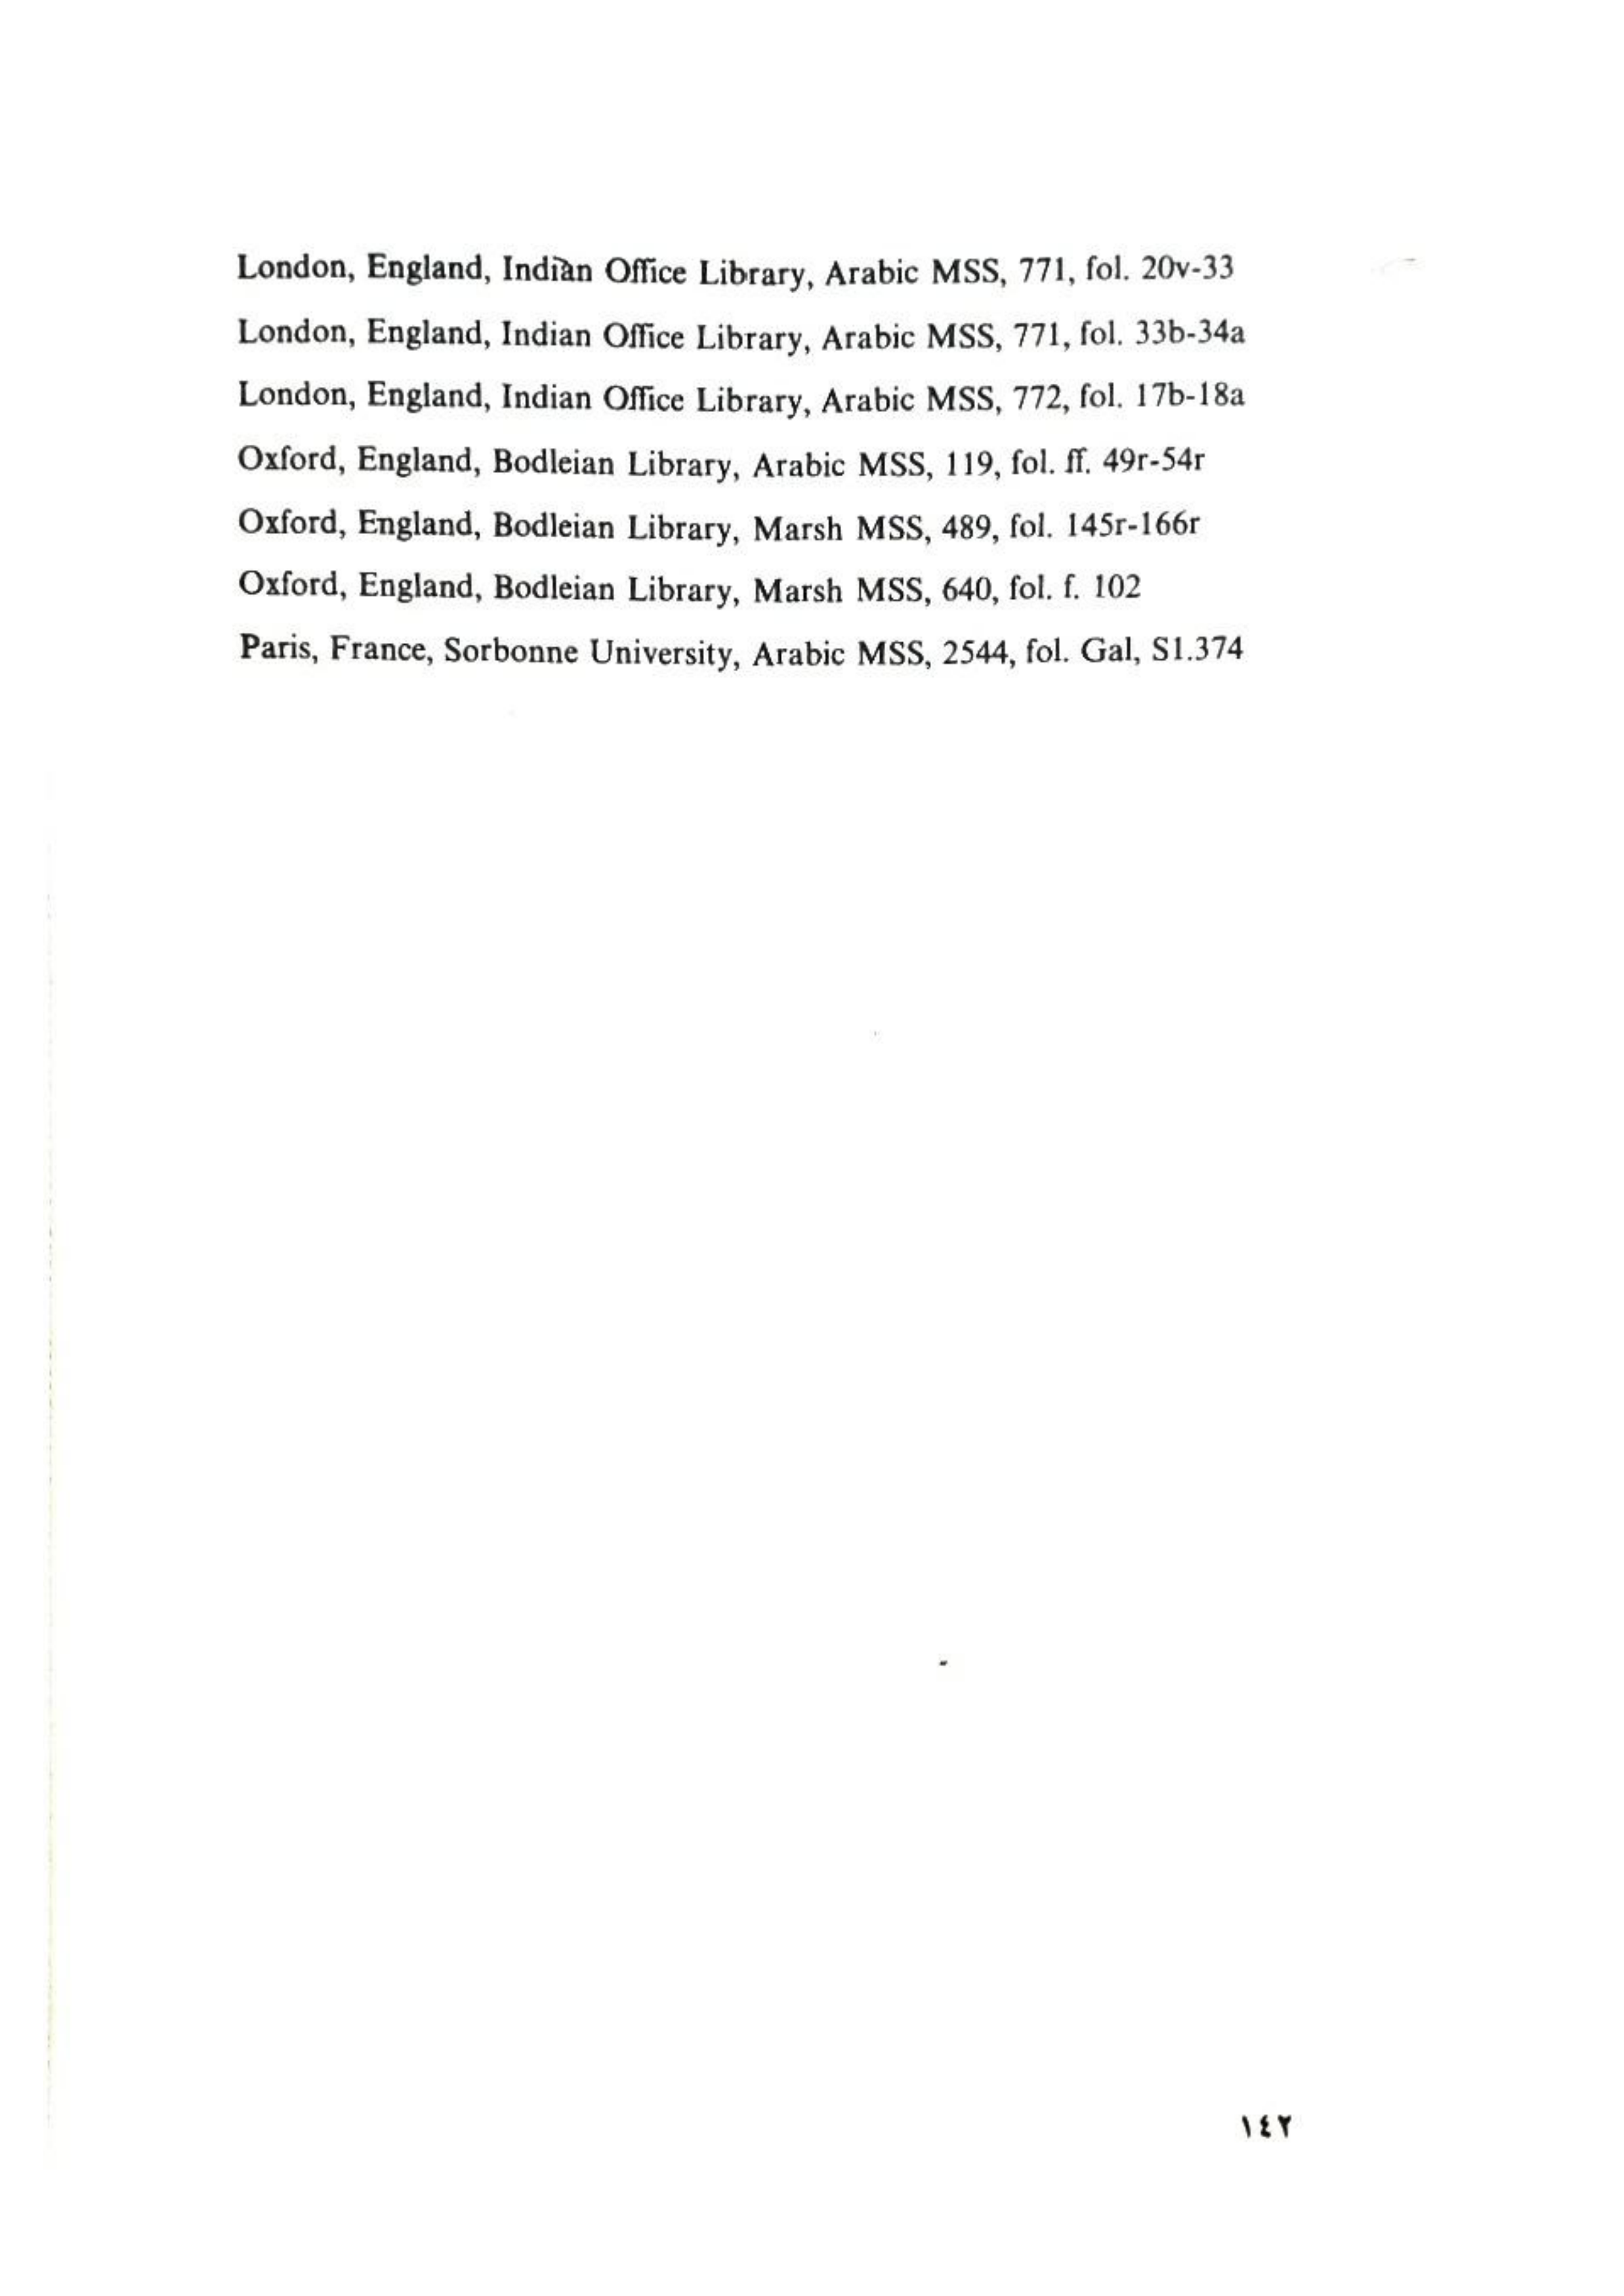 London, England, Indian Office Library, Arabic MSS, 771, fol. 20v-33
London, England, Indian Office Library, Arabic MSS, 771, fol. 33b-34a
London, England, Indian Office Library, Arabic MSS, 772, fol. 17b-18a
Oxford, England, Bodleian Library, Arabic MSS, 119, fol. ff. 49r-54r
Oxford, England, Bodleian Library, Marsh MSS, 489, fol. 145r-166r
Oxford, England, Bodleian Library, Marsh MSS, 640, fol. f. 102
Paris, France, Sorbonne University, Arabic MSS, 2544, fol. Gal, S1.374
١٤٢